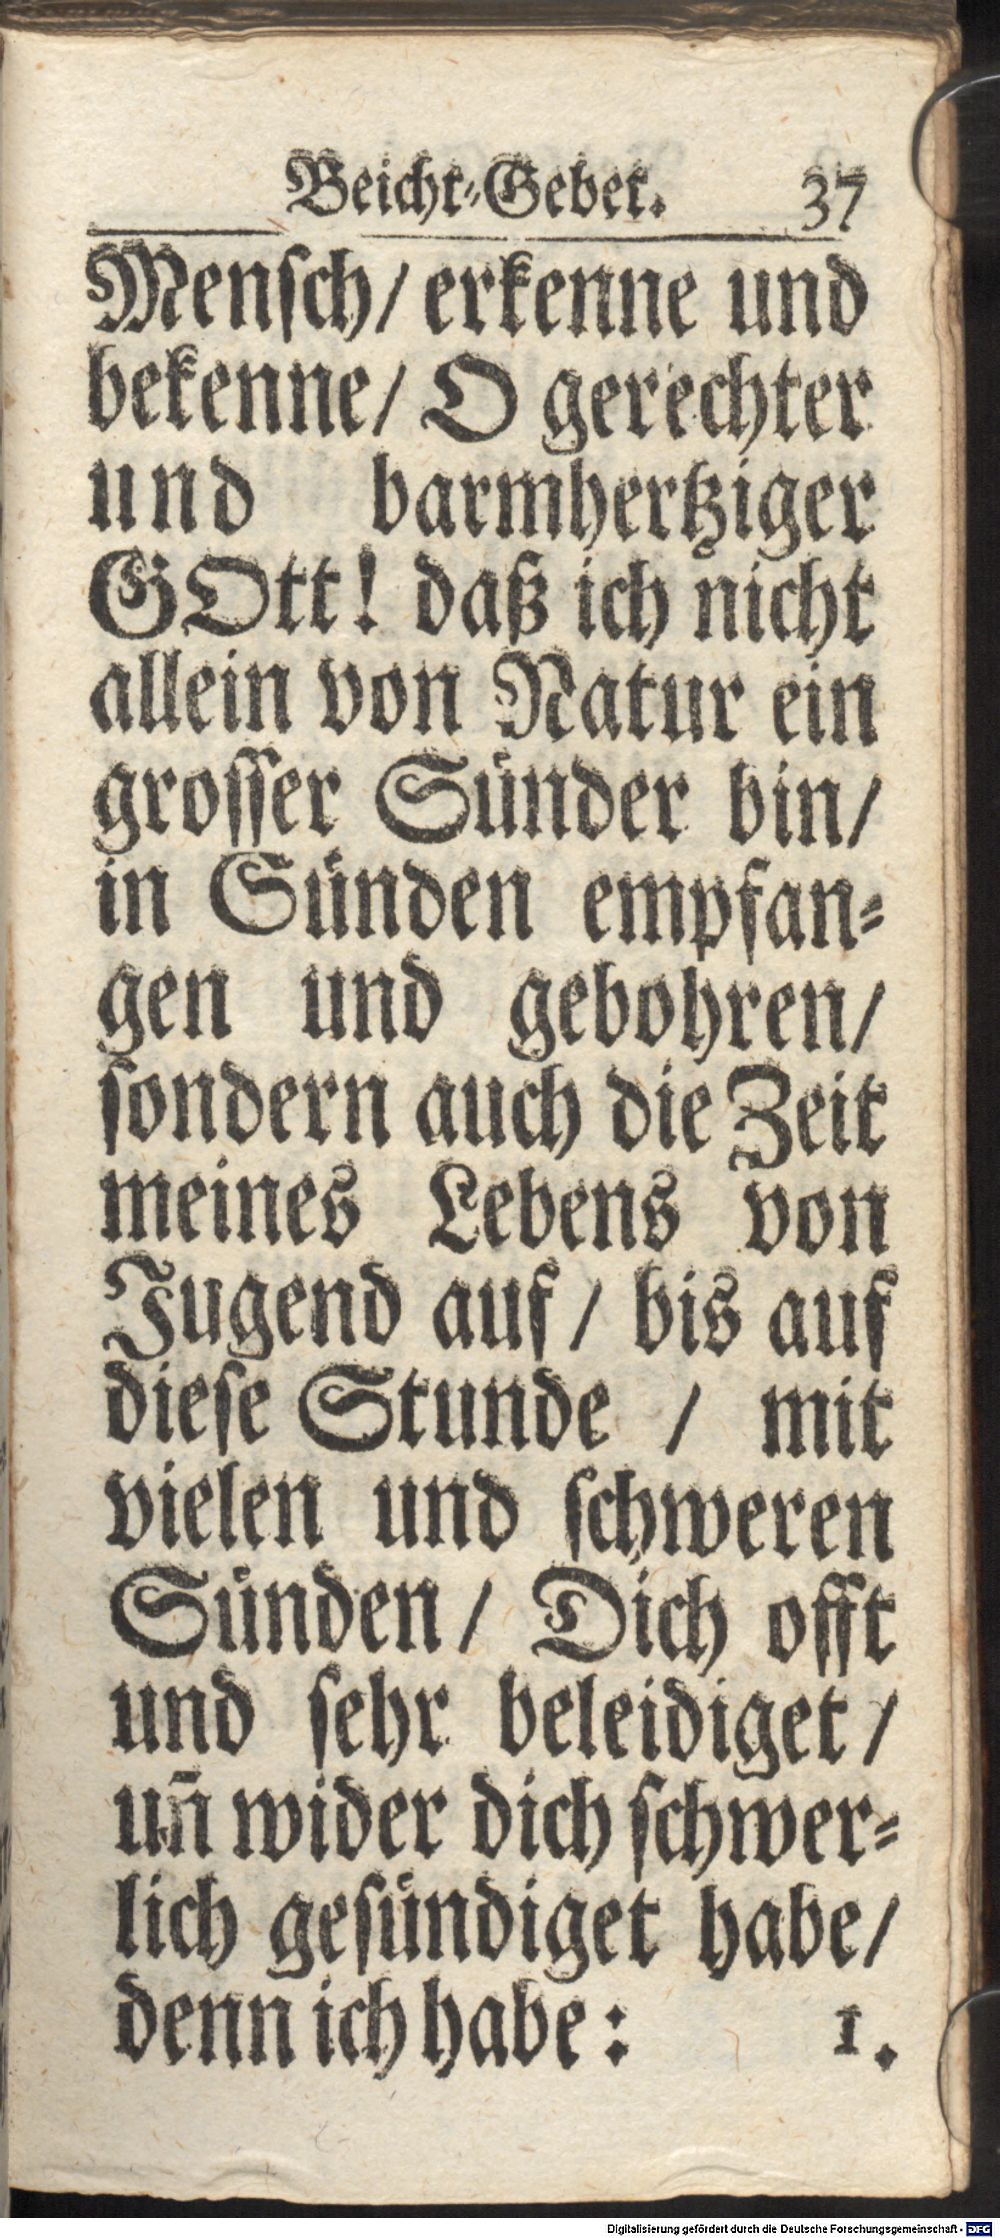 Beicht-Gebet. 37
Mensch/ erkenne und
bekenne/ O gerechter
und barmhertziger
GOtt! daß ich nicht
allein von Natur ein
grosser Sünder bin/
in Sünden empfan-
gen und gebohren/
sondern auch die Zeit
meines Lebens von
Jugend auf / bis auf
diese Stunde / mit
vielen und schweren
Sünden/ Dich offt
und sehr beleidiget/
uñ wider dich schwer-
lich gesündiget habe/
denn ich habe: 1.
Digitalisierung gefördert durch die Deutsche Forschungsgemeinschaft - DFG